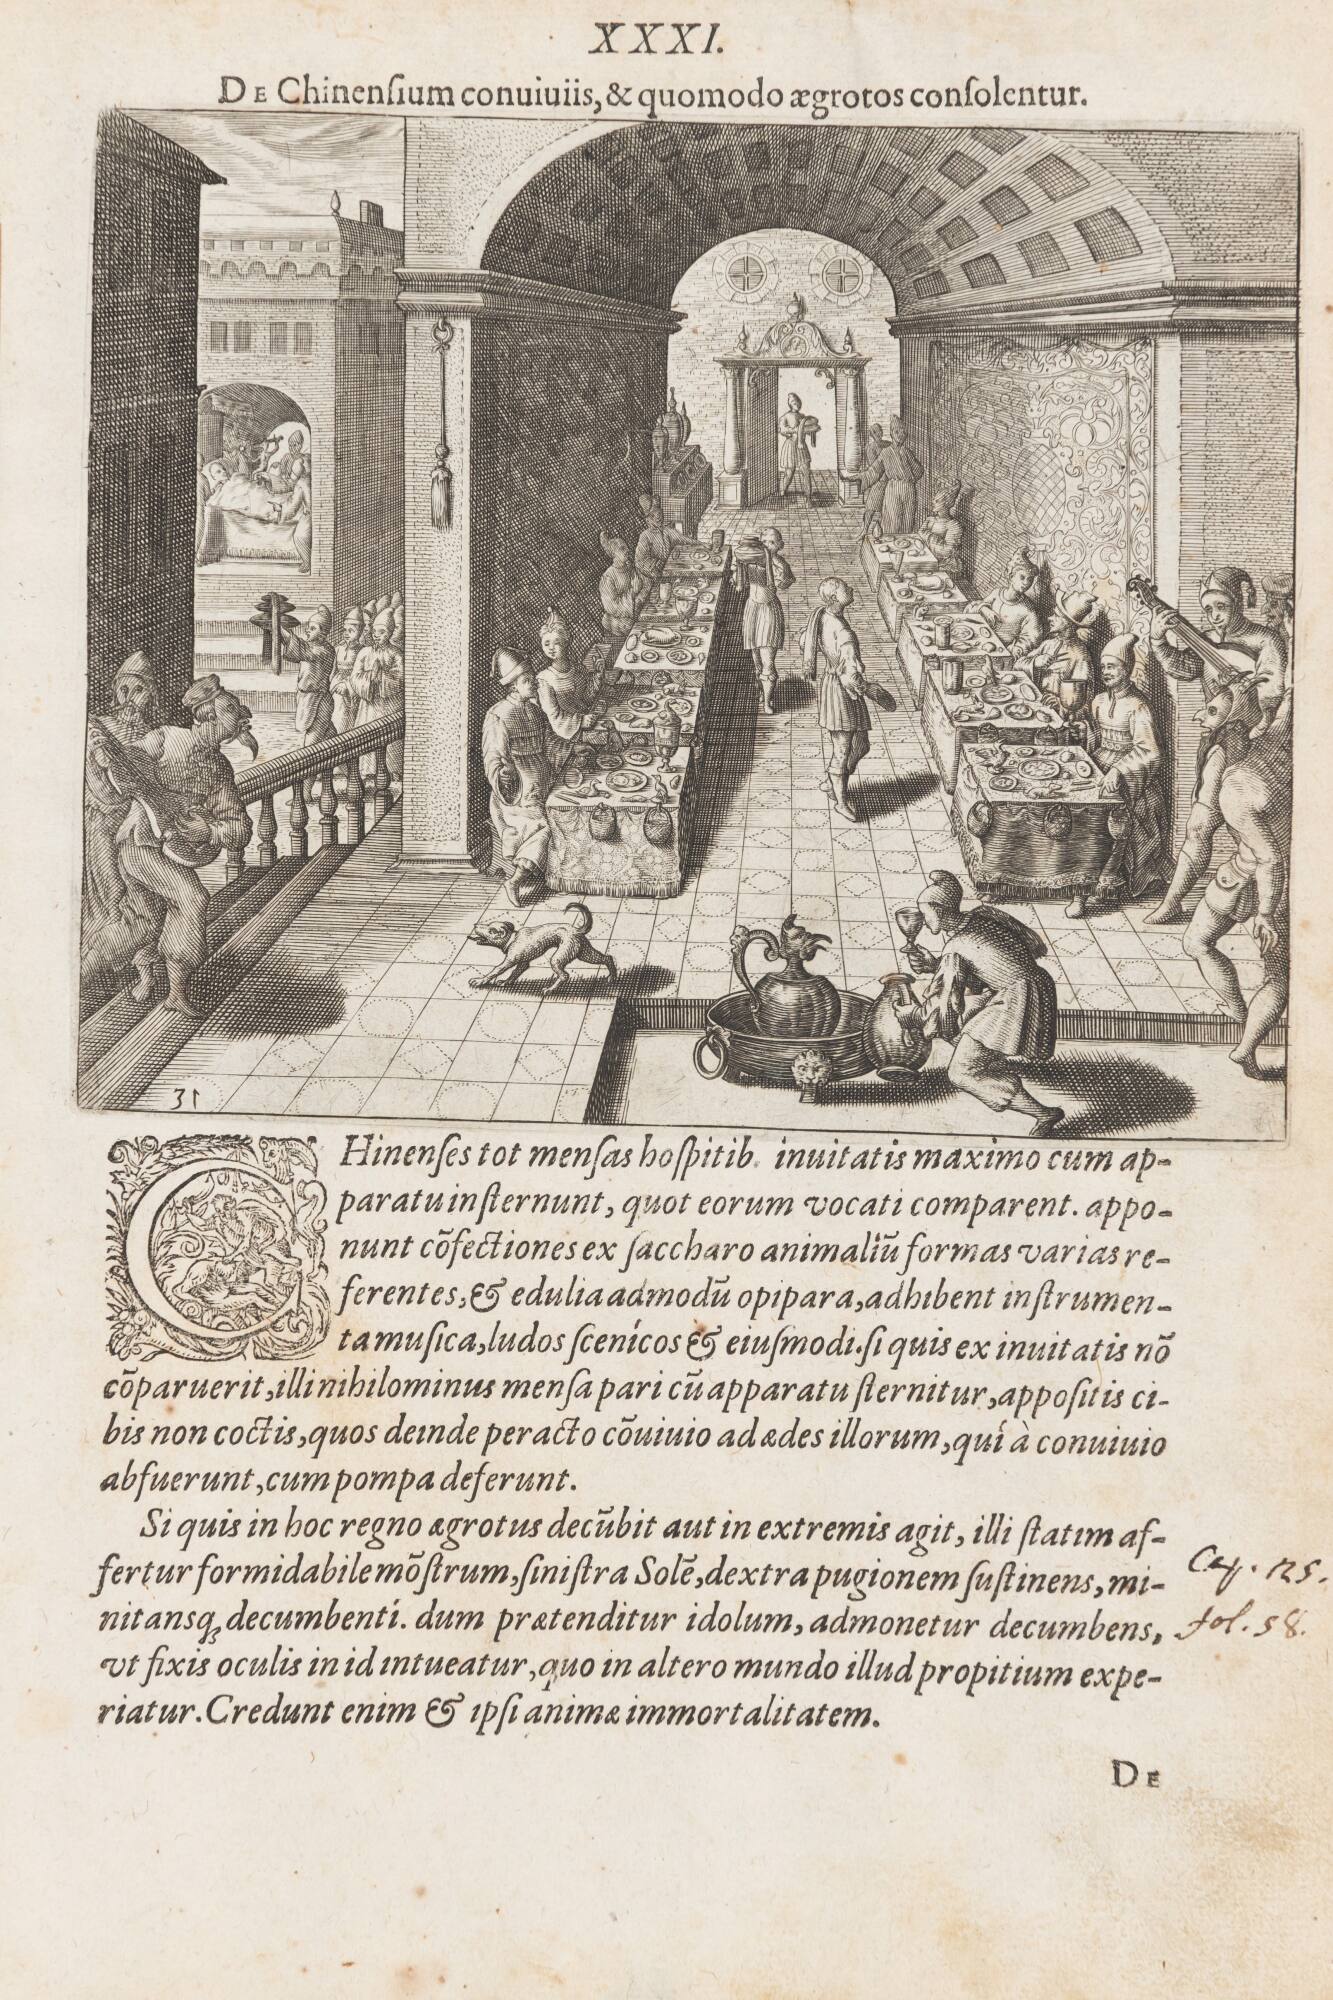 XXXI.
DE Chinenſium conuiuiis, & quomodo ægrotos conſolentur.
31
CHinenſes tot menſas hoſpitib. inuitatis maximo cum ap-
paratu inſternunt, quot eorum vocati comparent. appo-
nunt cõfectiones ex ſaccharo animaliũ formas varias re-
ferentes, & edulia admodũ opipara, adhibent inſtrumen-
ta muſica, ludos ſcenicos & eiuſmodi. ſi quis ex inuitatis nõ
cõparuerit, illi nihilominus menſa pari cũ apparatu ſternitur, appoſitis ci-
bis non coctis, quos deinde peracto cõuiuio ad ædes illorum, qui à conuiuio
abfuerunt, cum pompa deferunt.
Si quis in hoc regno ægrotus decũbit aut in extremis agit, illi ſtatim af-
fertur formidabile mõſtrum, ſiniſtra Solẽ, dextra pugionem ſuſtinens, mi-
nitansq; decumbenti. dum prætenditur idolum, admonetur decumbens,
vt fixis oculis in id intueatur, quo in altero mundo illud propitium expe-
riatur. Credunt enim & ipſi animæ immortalitatem.
Cap. 125.
fol. 58.
DE